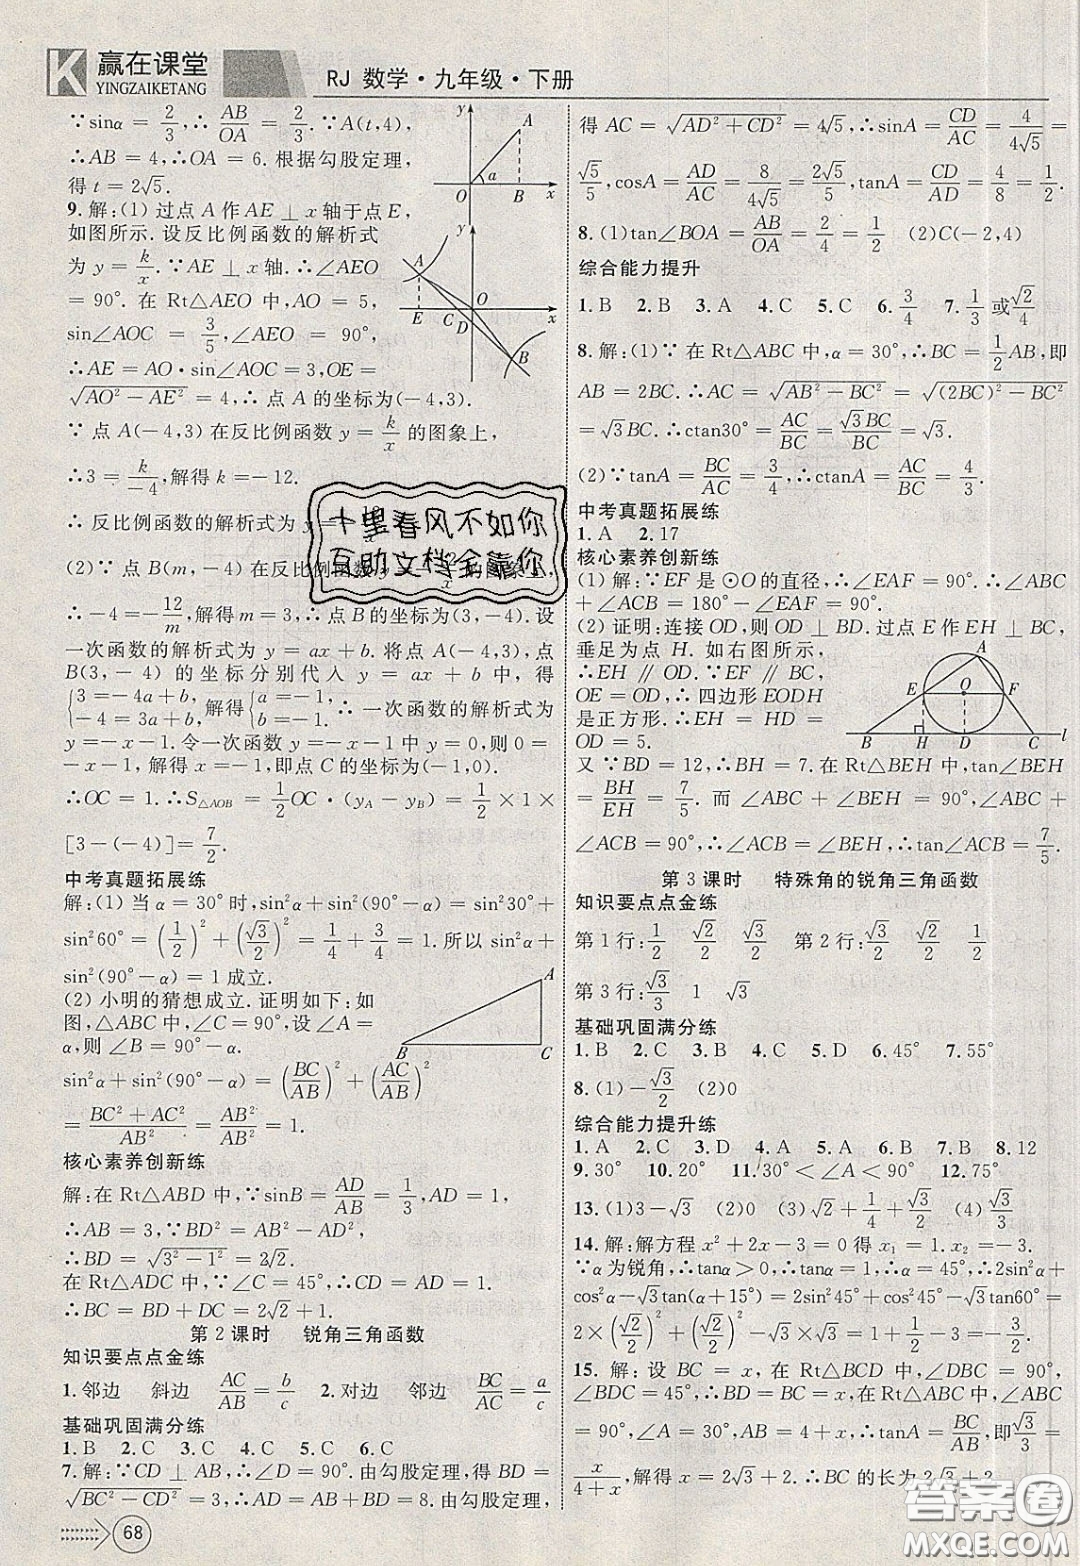 K 赢在课堂
YINGZAIKETANG
RJ 数学·九年级·下册
∵sinα=2/3,∴AB/OA=2/3.∵A(t,4),
∴AB=4,∴OA=6.根据勾股定理,
得 t=2√5.
9.解:(1) 过点 A 作 AE⊥x 轴于点 E,
如图所示.设反比例函数的解析式
为 y=k/x.∵AE⊥x轴.∴∠AEO
=90°.在 Rt△AEO 中,AO=5,
sin∠AOC=3/5,∠AEO=90°,
∴AE=AO·sin∠AOC=3,OE=
√(AO²-AE²)=4,∴点 A 的坐标为(-4,3).
∵点 A(-4,3)在反比例函数 y=k/x 的图象上,
∴3=k/-4,解得 k=-12.
∴反比例函数的解析式为 y=
(2)∵点 B(m,-4)在反比例函数 y=-12/x 的图象上,
∴-4=-12/m,解得 m=3,∴点 B 的坐标为(3,-4).设
一次函数的解析式为 y=ax+b.将点 A(-4,3),点
B(3,-4) 的坐标分别代入 y=ax+b 中,得
{3=-4a+b, -4=3a+b, 解得{a=-1, b=-1. ∴一次函数的解析式为
y=-x-1.令一次函数 y=-x-1 中 y=0,则 0=
-x-1,解得 x=-1,即点 C 的坐标为(-1,0).
∴OC=1.∴S△AOB=1/2OC·(yA-yB)=1/2×1×
[3-(-4)]=7/2.
中考真题拓展练
解:(1) 当 α=30°时,sin²α+sin²(90°-α)=sin²30°+
sin²60°=(1/2)²+(√3/2)²=1/4+3/4=1.所以 sin²α+
sin²(90°-α)=1成立.
(2) 小明的猜想成立.证明如下:如
图,△ABC 中,∠C=90°,设∠A=
α,则∠B=90°-α.
sin²α+sin²(90°-α)=(BC/AB)²+(AC/AB)²
=(BC²+AC²)/AB²=AB²/AB²=1.
核心素养创新练
解:在 Rt△ABD 中,∵sinB=AD/AB=1/3,AD=1,
∴AB=3,∵BD²=AB²-AD²,
∴BD=√(3²-1²)=2√2.
在 Rt△ADC 中,∵∠C=45°,∴CD=AD=1.
∴BC=BD+DC=2√2+1.
第 2 课时 锐角三角函数
知识要点点金练
1.邻边 斜边 AC/AB b/c 2.对边 邻边 BC/AC a/c
基础巩固满分练
1.B 2.C 3.C 4.A 5.C 6.C
7.解:∵CD⊥AB,∴∠CDB=90°.由勾股定理,得 BD=
√(BC²-CD²)=3,∴AD=AB-BD=8.由勾股定理,
68
得 AC=√(AD²+CD²)=4√5,∴sinA=CD/AC=4/4√5=
√5/5,cosA=AD/AC=8/4√5=2√5/5,tanA=CD/AD=4/8=1/2.
8.(1)tan∠BOA=AB/OA=2/4=1/2 (2)C(-2,4)
综合能力提升
1.B 2.B 3.A 4.C 5.C 6.3/4 7.1/3 或 √2/4
8.解:(1)∵在 Rt△ABC 中,α=30°,∴BC=1/2AB,即
AB=2BC.∴AC=√(AB²-BC²)=√((2BC)²-BC²)
=√3BC.∴ctan30°=AC/BC=√3BC/BC=√3.
(2)∵tanA=BC/AC=3/4,∴ctanA=AC/BC=4/3.
中考真题拓展练
1.A 2.17
核心素养创新练
(1)解:∵EF 是⊙O 的直径,∴∠EAF=90°.∴∠ABC
+∠ACB=180°-∠EAF=90°.
(2) 证明:连接 OD,则 OD⊥BD.过点 E 作 EH⊥BC,
垂足为点 H.如右图所示,
∴EH∥OD.∵EF∥BC,
OE=OD,∴四边形 EODH
是正方形.∴EH=HD=
OD=5.
又∵BD=12,∴BH=7.在 Rt△BEH 中,tan∠BEH
=BH/EH=7/5.而∠ABC+∠BEH=90°,∠ABC+
∠ACB=90°,∴∠ACB=∠BEH,∴tan∠ACB=7/5.
第 3 课时 特殊角的锐角三角函数
知识要点点金练
第 1 行:1/2 √2/2 √3/2 第 2 行:√3/2 √2/2 1/2
第 3 行:√3/3 1 √3
基础巩固满分练
1.B 2.C 3.B 4.C 5.D 6.45° 7.55°
8.(1)-√3/2 (2)0
综合能力提升练
1.A 2.C 3.D 4.A 5.A 6.B 7.B 8.12
9.30° 10.20° 11.30°<∠A<90° 12.75°
13.(1)3-√3 (2)0 (3)√2+1/4+√3/2 (4)√3/3
14.解:解方程 x²+2x-3=0得 x₁=1.x₂=-3.
∵α为锐角,∴tanα>0,∴tanα=1,∴α=45°,∴2sin²α+
cos²α-√3tan(α+15°)=2sin²45°+cos²45°-√3tan60°=
2×(√2/2)²+(√2/2)²-√3×√3=1+1/2-3=-3/2.
15.解:设 BC=x,在 Rt△BCD 中,∠DBC=90°,
∠BDC=45°,∴BD=BC=x.在 Rt△ABC 中,∠ABC
=90°,∠A=30°,AB=4+x,∴tanA=BC/AB,即√3/3=
x/(4+x),解得 x=2√3+2.∴BC 的长为 2√3+2.
y A O α B x
y A E C D O B x
A B C
A E O F B H D C l
十里春风不如你
互助文档全靠你
答案圈
MXQE.COM